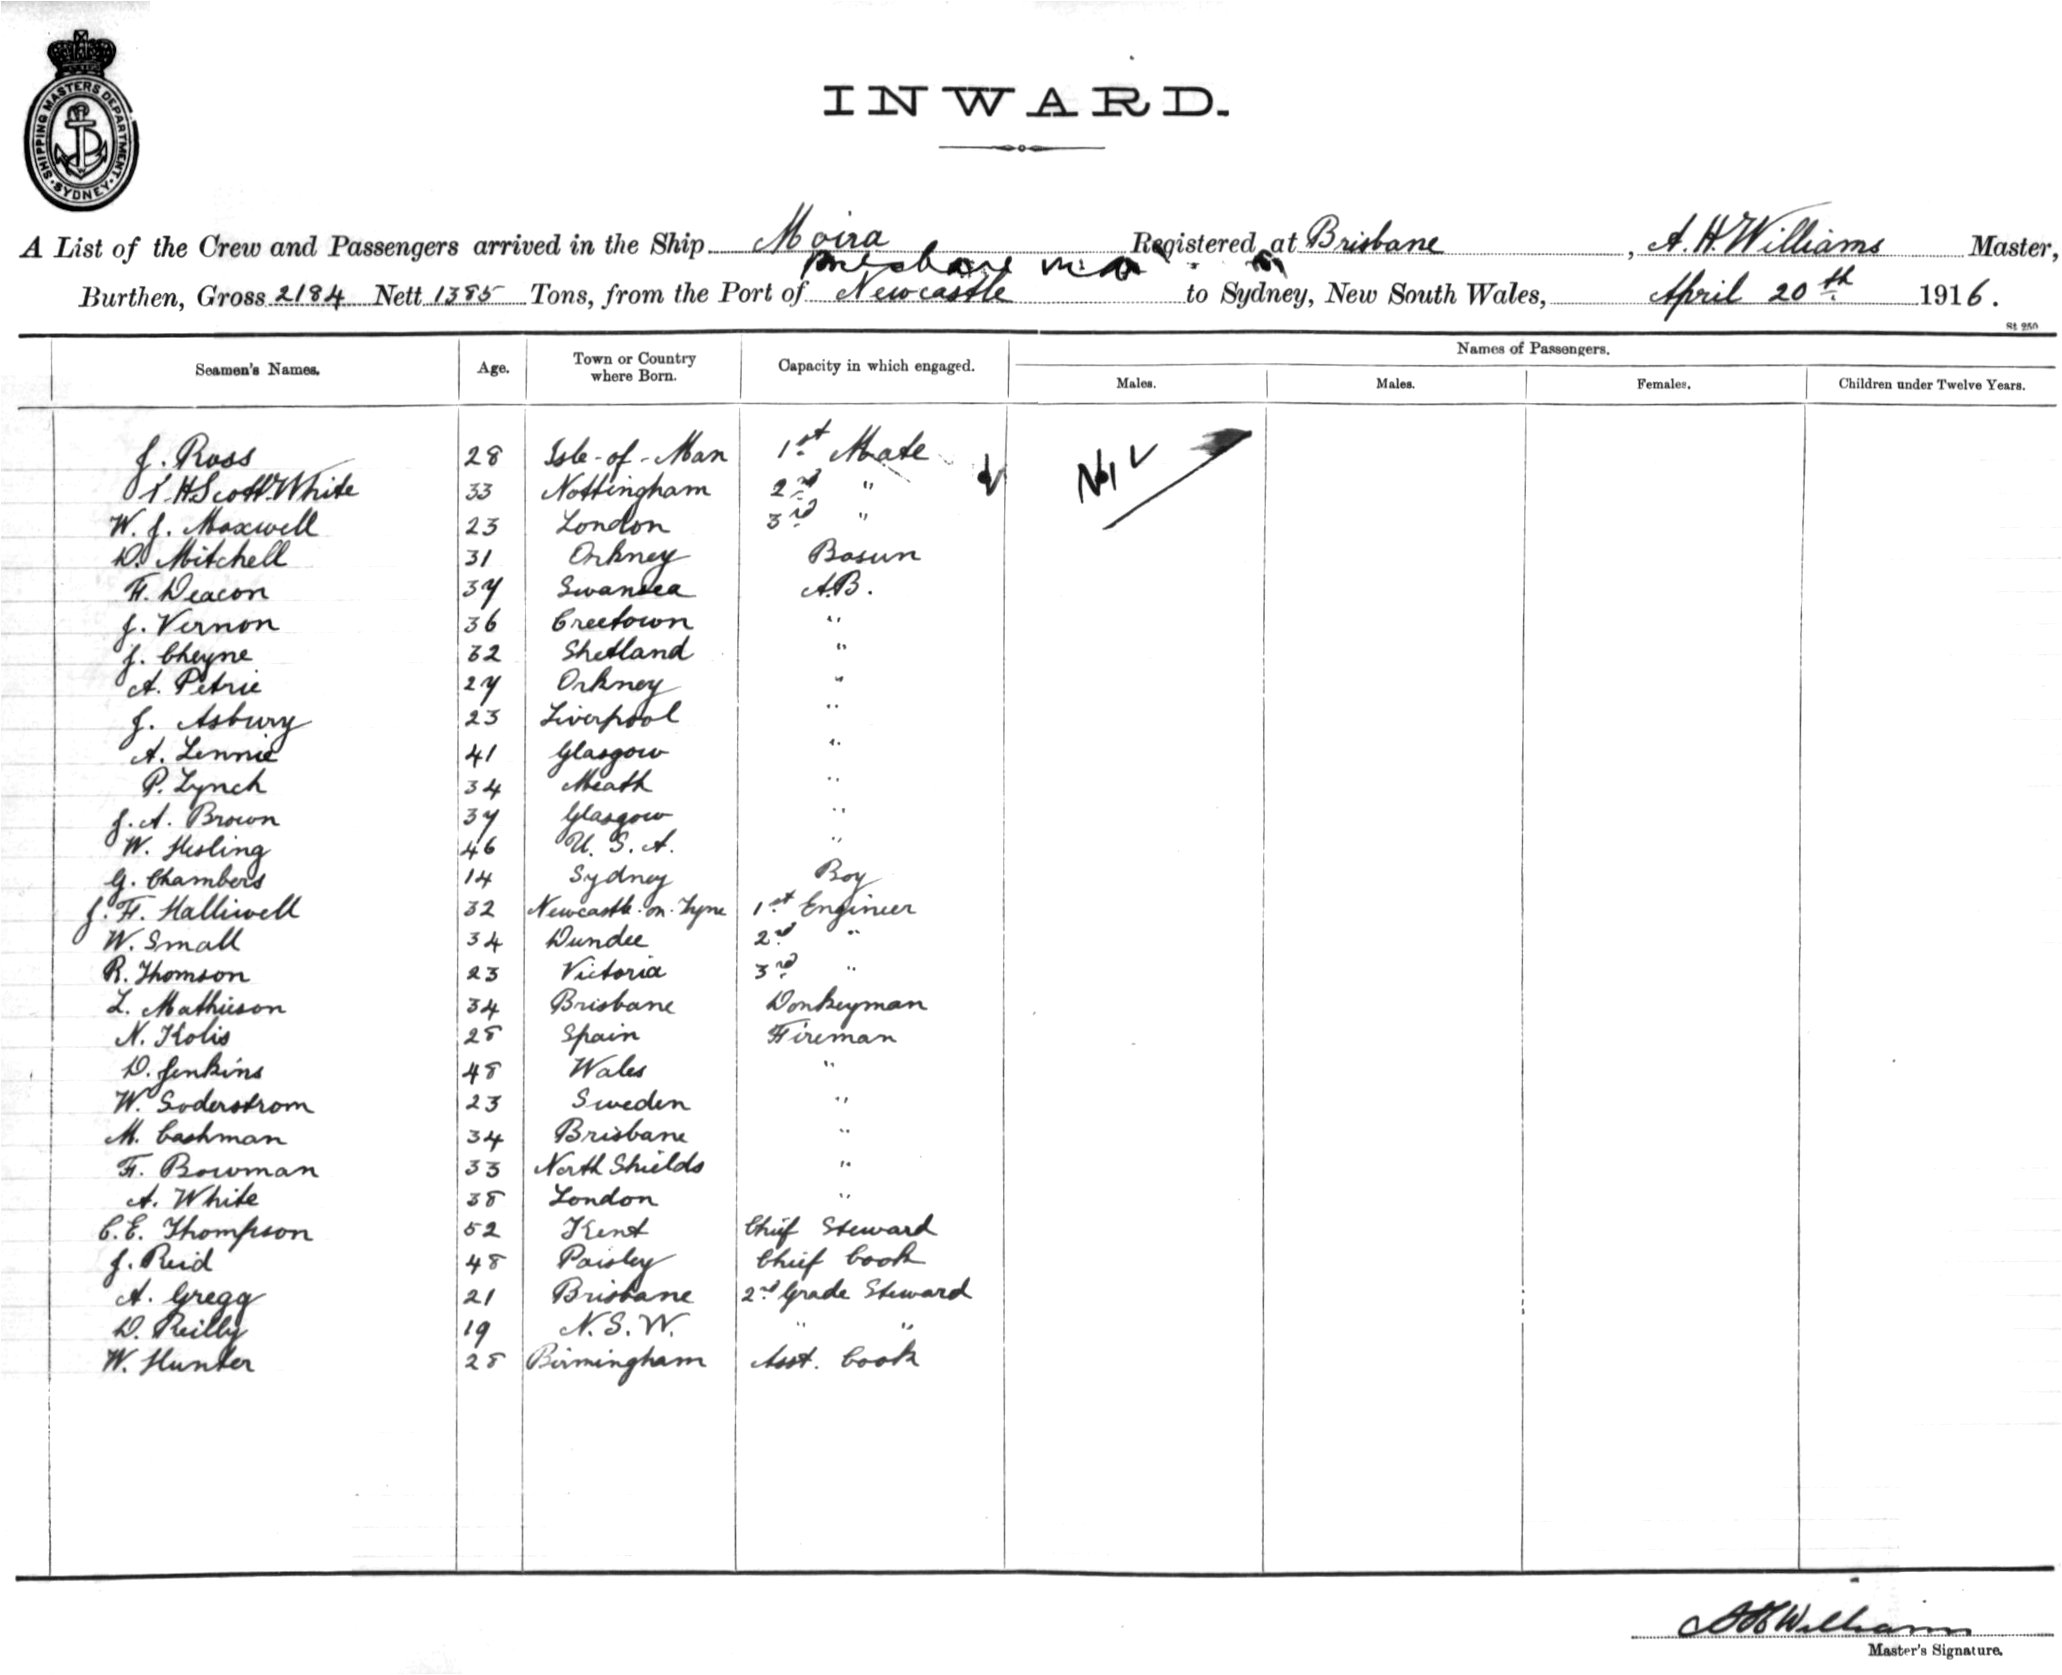 SHIPPING MASTERS DEPARTMENT · SYDNEY ·
INWARD.
A List of the Crew and Passengers arrived in the Ship Moira Registered at Brisbane, A. H. Williams Master,
Burthen, Gross 2184 Nett 1385 Tons, from the Port of Newcastle to Sydney, New South Wales, April 20th 1916.
St 250
Seamen's Names. Age. Town or Country where Born. Capacity in which engaged. Names of Passengers.
Males. Males. Females. Children under Twelve Years.
J. Ross 28 Isle-of-Man 1st Mate Nil
H Scott White 33 Nottingham 2nd "
W. J. Maxwell 23 London 3rd "
D. Mitchell 31 Orkney Bosun
F. Deacon 37 Swansea A.B.
J. Vernon 36 Creetown "
J. Cheyne 32 Shetland "
A. Petrie 27 Orkney "
J. Asbury 23 Liverpool "
A. Lennie 41 Glasgow "
P. Lynch 34 Meath "
J. A. Brown 37 Glasgow "
W. Hesling 46 U.S.A. "
G. Chambers 14 Sydney Boy
J. F. Halliwell 32 Newcastle-on-Tyne 1st Engineer
W. Small 34 Dundee 2nd "
R. Thomson 23 Victoria 3rd "
L. Mathieson 34 Brisbane Donkeyman
N. Kolis 28 Spain Fireman
D. Jenkins 48 Wales "
W. Soderstrom 23 Sweden "
M. Cashman 34 Brisbane "
F. Bowman 33 North Shields "
A. White 38 London "
C. E. Thompson 52 Kent Chief Steward
J. Reid 48 Paisley Chief Cook
A. Gregg 21 Brisbane 2nd Grade Steward
D. Reilly 19 N.S.W. " "
W. Hunter 28 Birmingham Asst. Cook
A H Williams
Master's Signature.